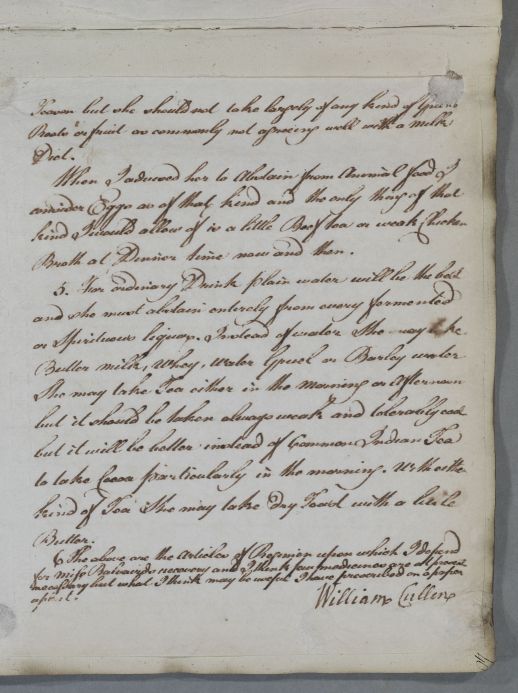 Season but she should not take largely of any kind of Greens
Roots or fruit as commonly not agreeing well with a milk
Diet.
When I advised her to Abstain from Animal food I
consider Eggs as of that kind and the only thing of that
kind I would allow of is a little Beef tea or weak Chicken
Broth at Dinner time now and then.
5. For ordinary Drink plain water will be the best
and she must abstain entirely from every fermented
or Spirituous liquor. Instead of water She may take
Butter milk, Whey, Water Gruel or Barley water
She may take Tea either in the morning or Afternoon
but it should be taken always weak and tolerably cool
but it will be better instead of Common Indian Tea
to take Cocoa particularly in the morning. With either
kind of Tea She may take dry Toast with a little
Butter.
6 The above are the Articles of Regimen upon which I depend
for Miss recovery and I think few medicines are at present
necessary but what I think may be useful I have prescribed on a paper
apart.
William Cullen